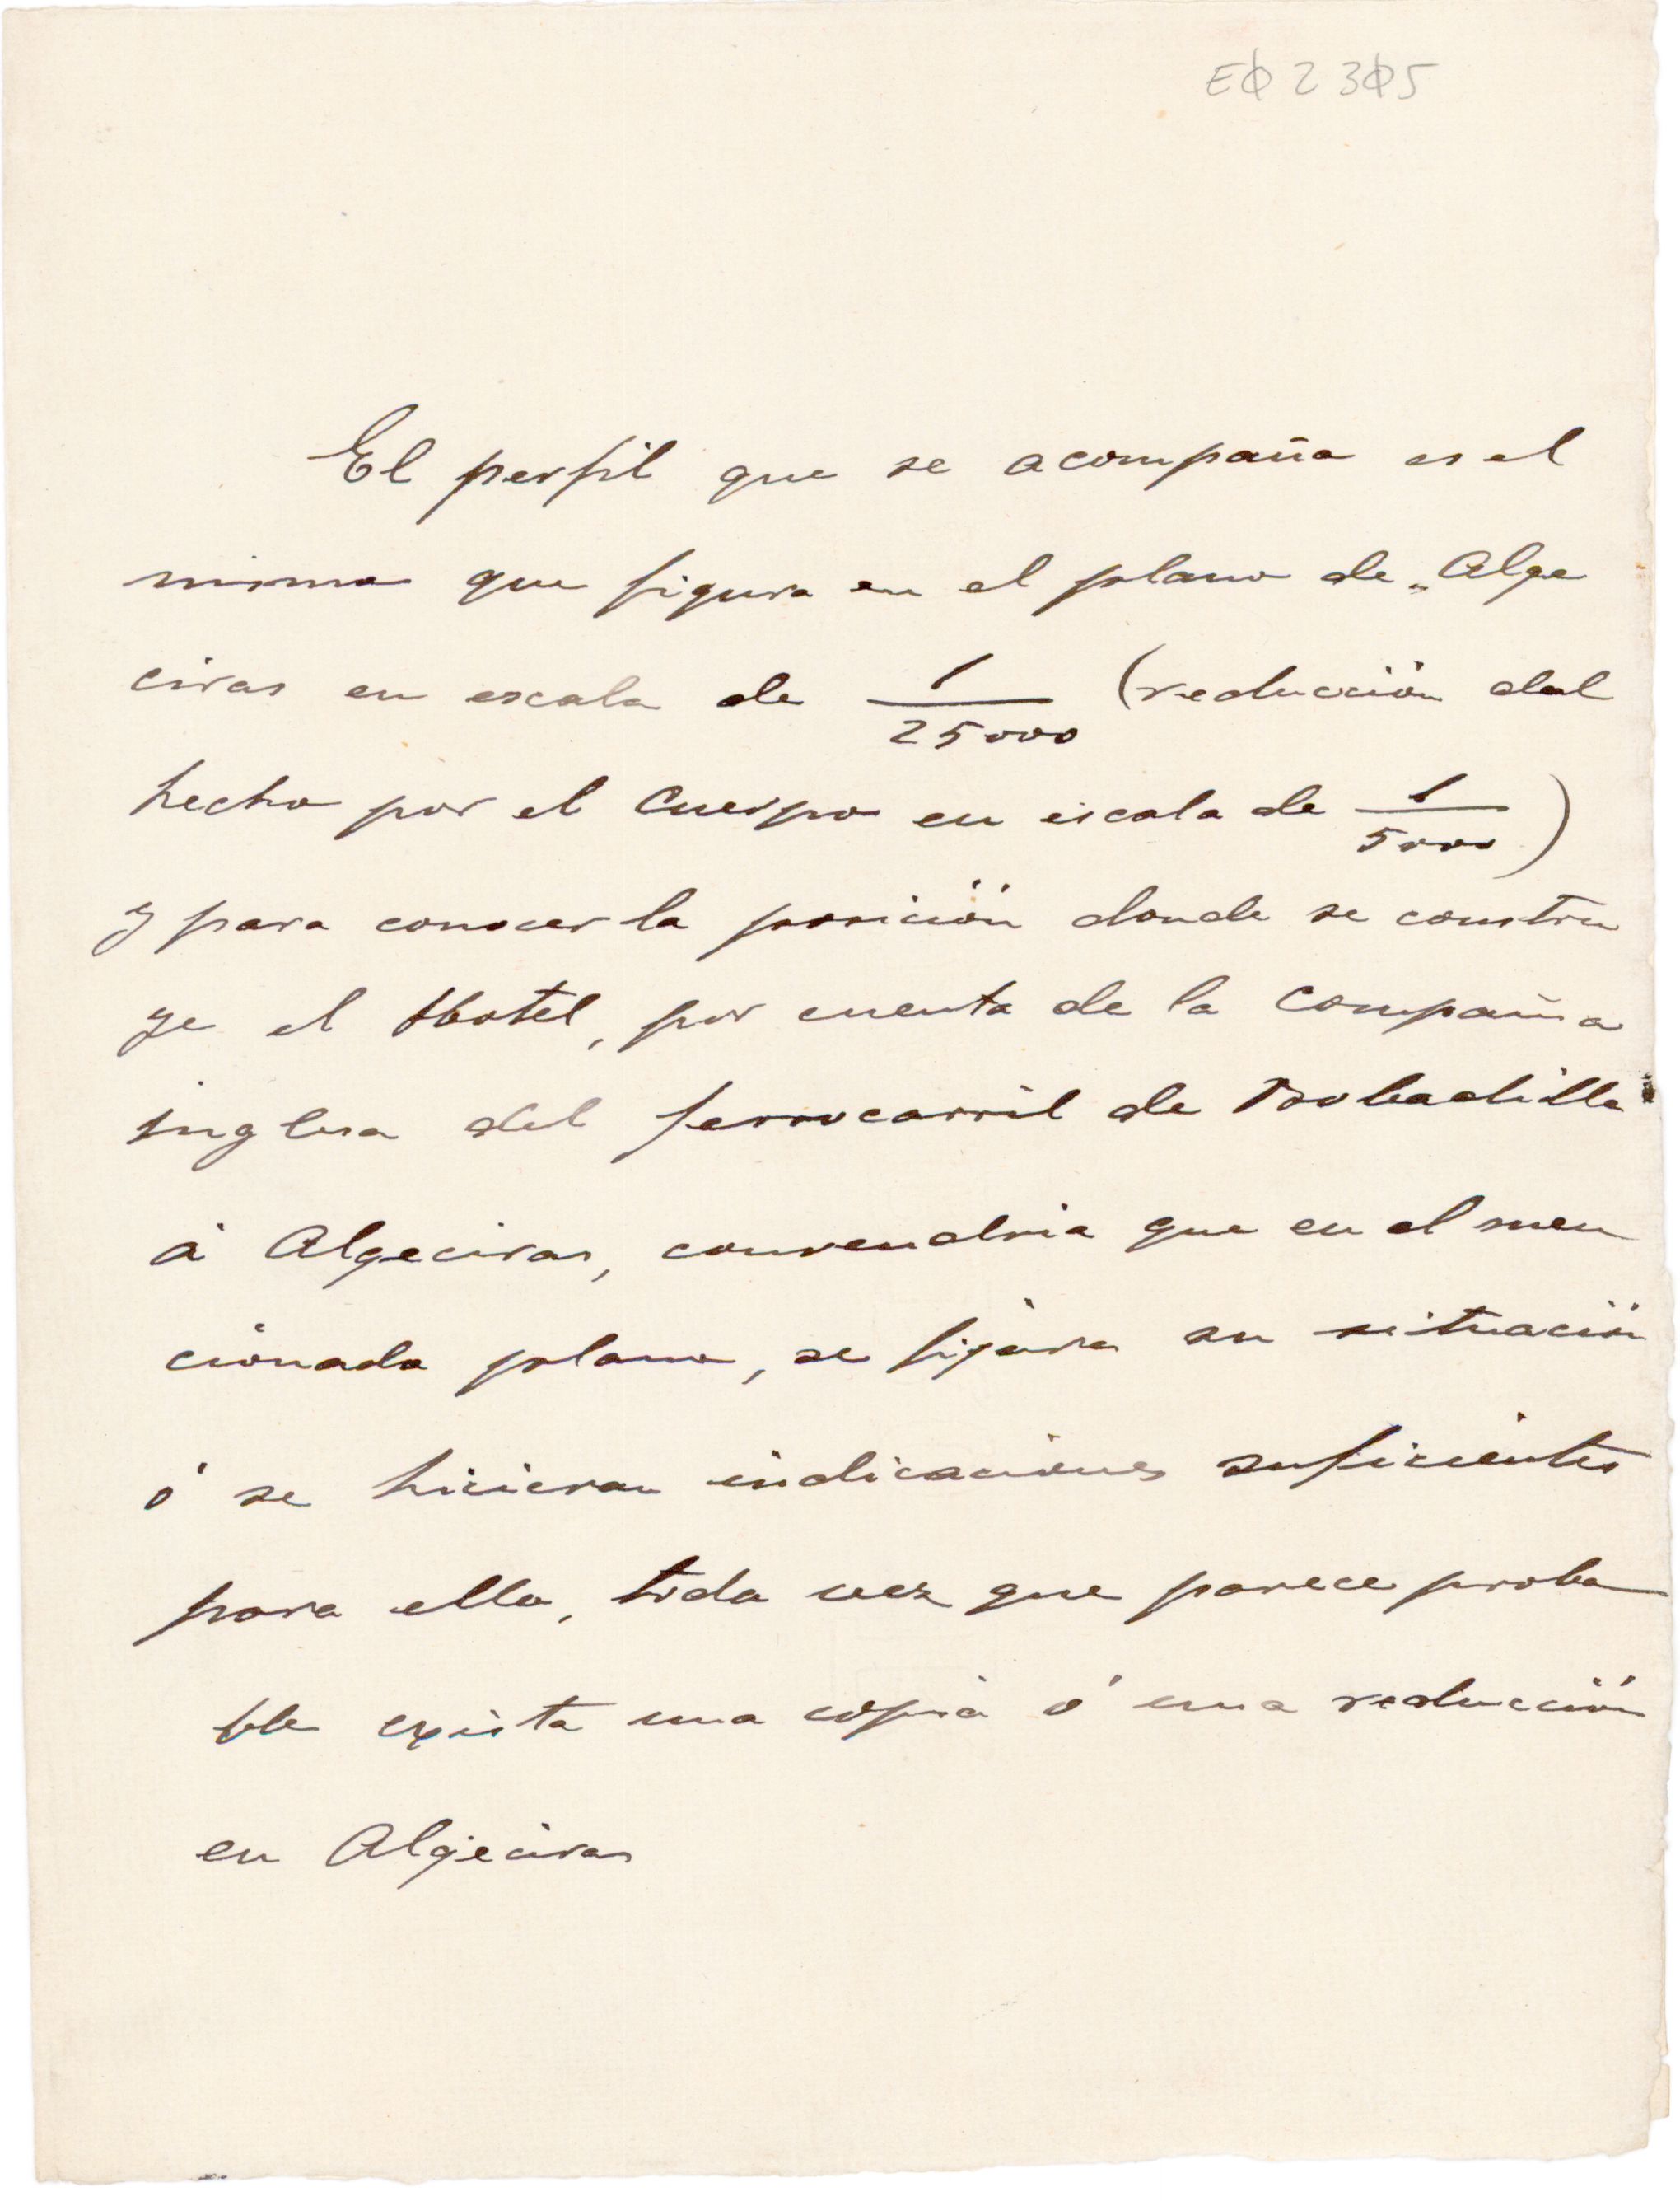 EØ 2 3Ø5
El perfil que se acompaña es el
mismo que figura en el plano de "Alge
ciras en escala de 1/25000 (reducción del
hecho por el Cuerpo en escala de 1/5000)
y para conocer la posición donde se constru
ye el Hotel, por cuenta de la Compañia
inglesa del ferrocarril de Bobadilla
á Algeciras, convendria que en el men
cionado plano, se fijara su situación
ó se hicieran indicaciones suficientes
para ello, toda vez que parece proba
ble exista una copia ó una reducción
en Algeciras